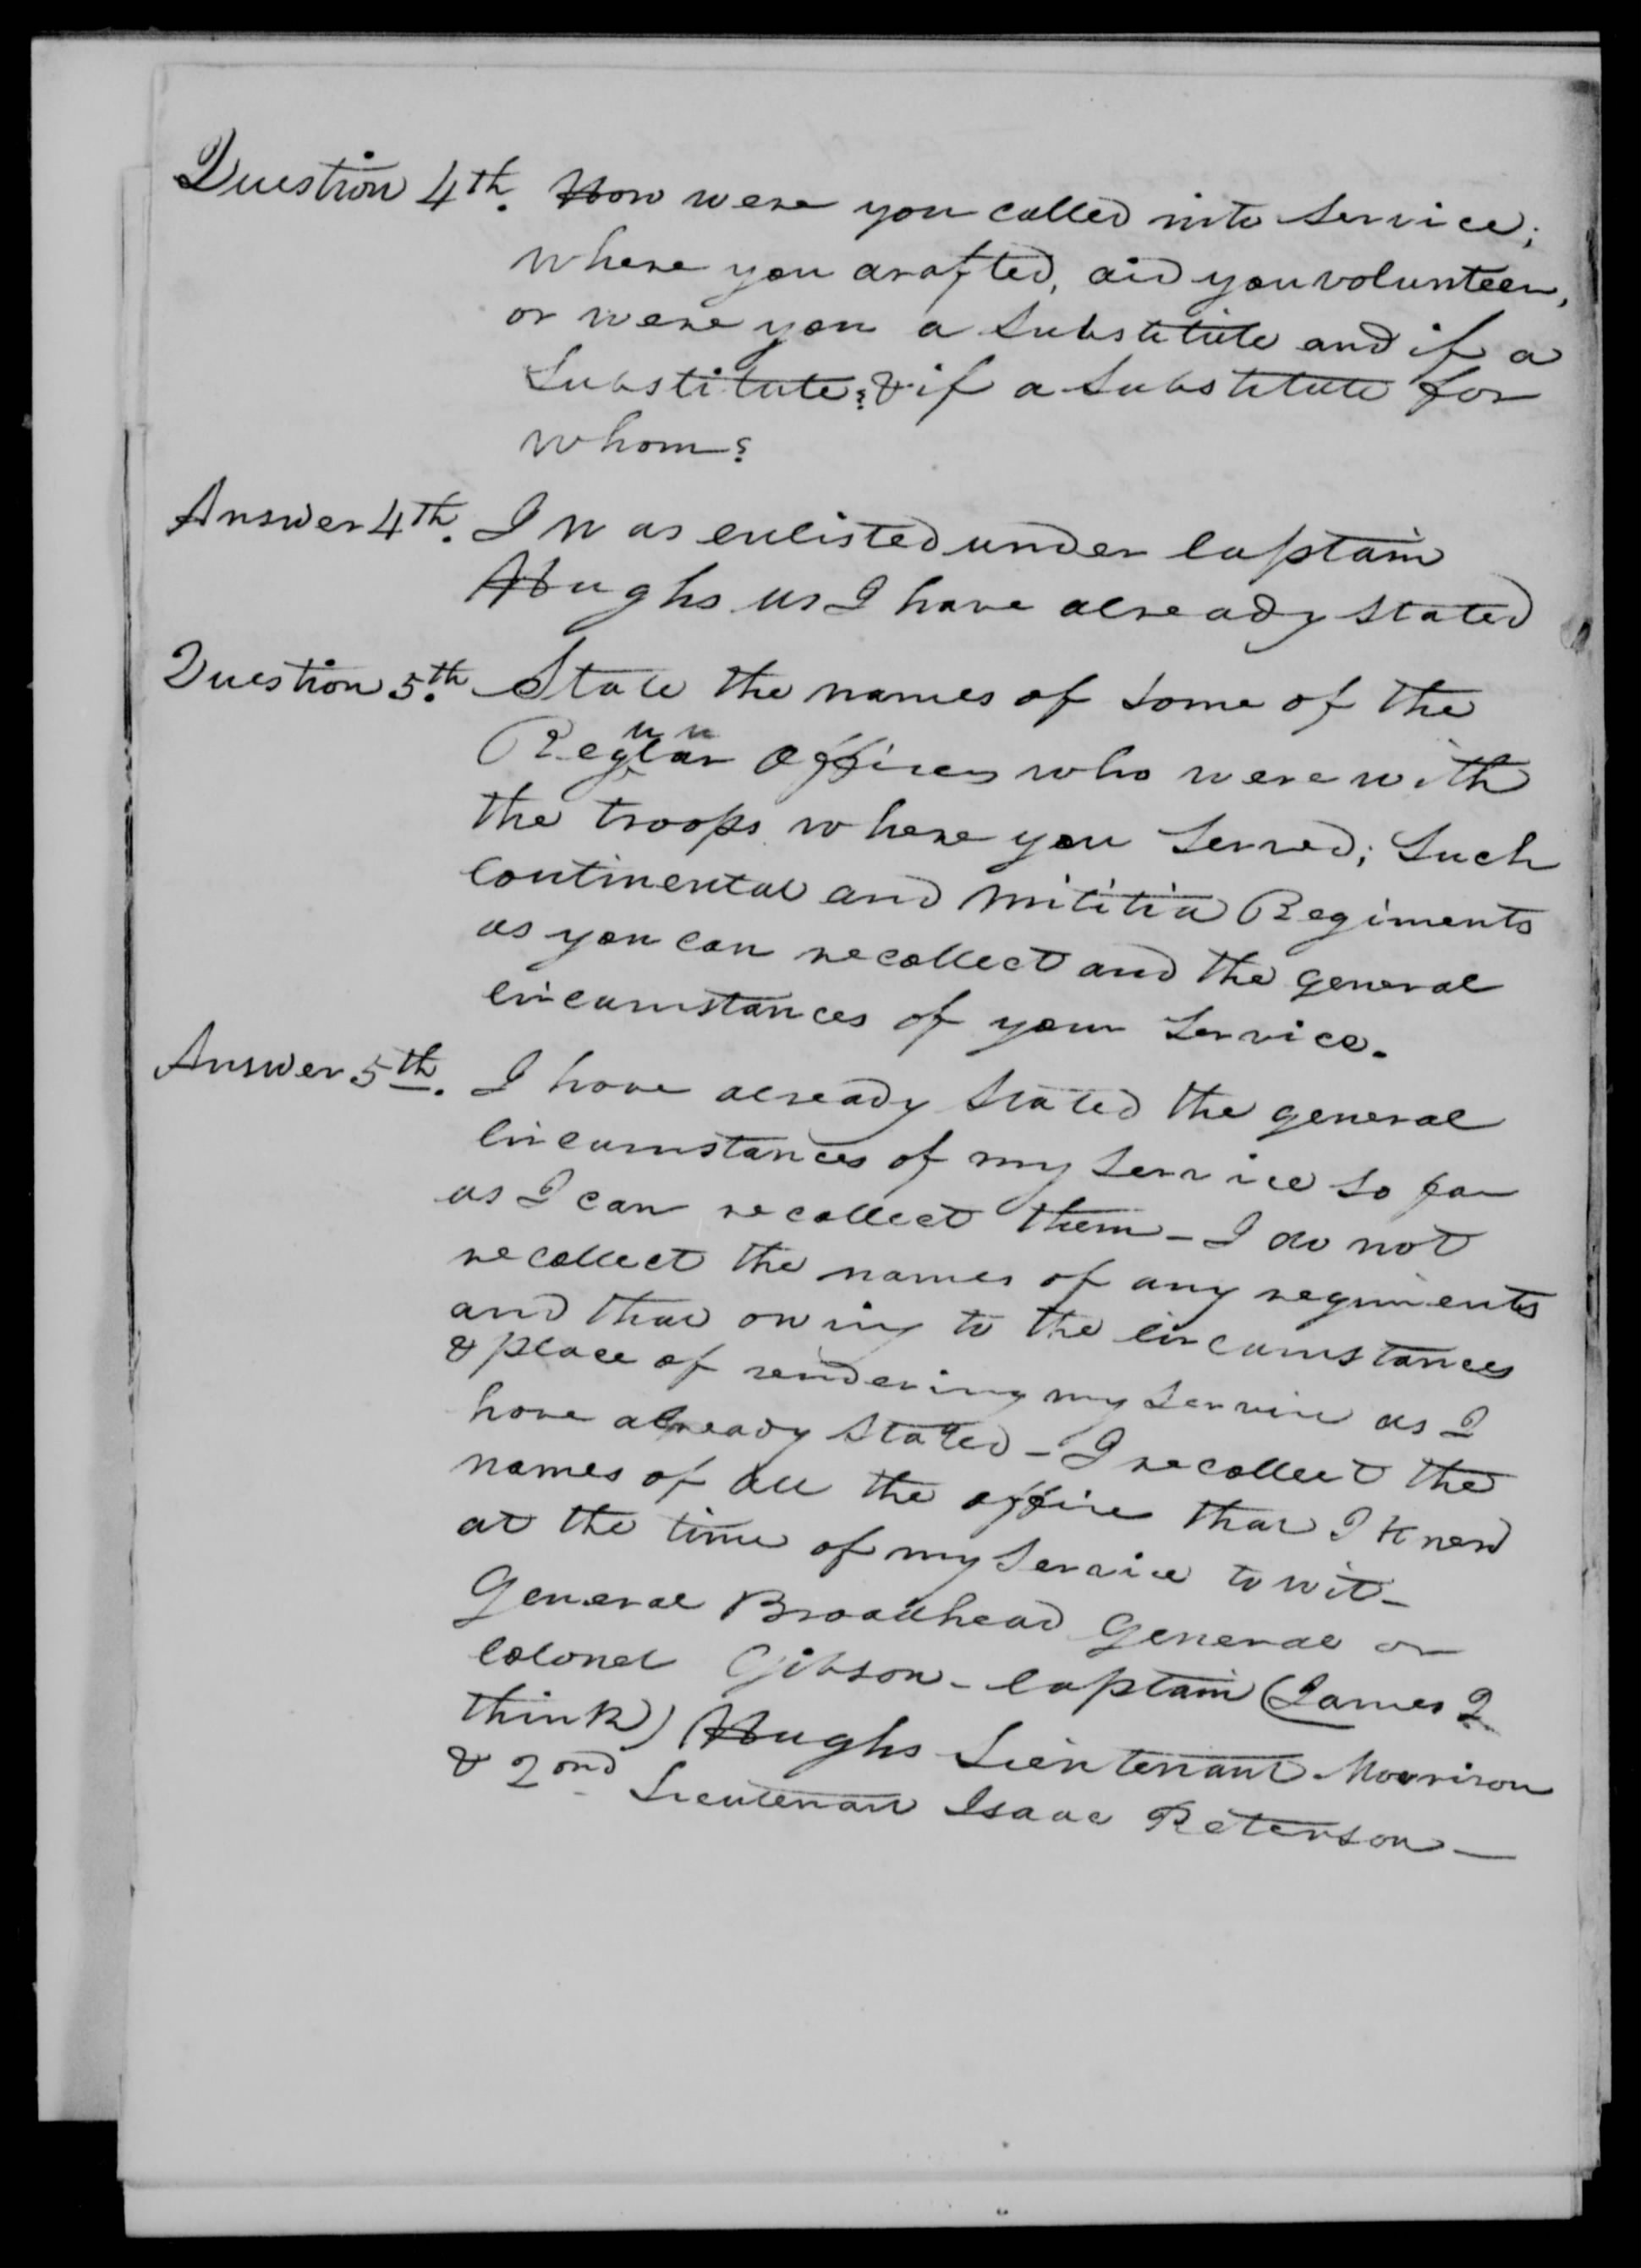 Question 4th. How were you called into service;
where you drafted, did you volunteer,
or were you a substitute and if a
substitute? & if a substitute for
whom?
Answer 4th. I was enlisted under Captain
Hughs as I have already stated
Question 5th. State the names of some of the
Regular officers who were with
the troops where you served; such
continental and militia Regiments
as you can recollect and the general
circumstances of your service.
Answer 5th. I have already stated the general
circumstances of my service so far
as I can recollect them - I do not
recollect the names of any regiments
and that owing to the circumstances
& place of rendering my service as I
have already stated - I recollect the
names of all the office that I knew
at the time of my service to wit -
General Broadhead General or
Colonel Gibson - Captain (James I
think) Hughs Lieutenant Morrison
& 2ond Lieutenant Isaac Peterson -